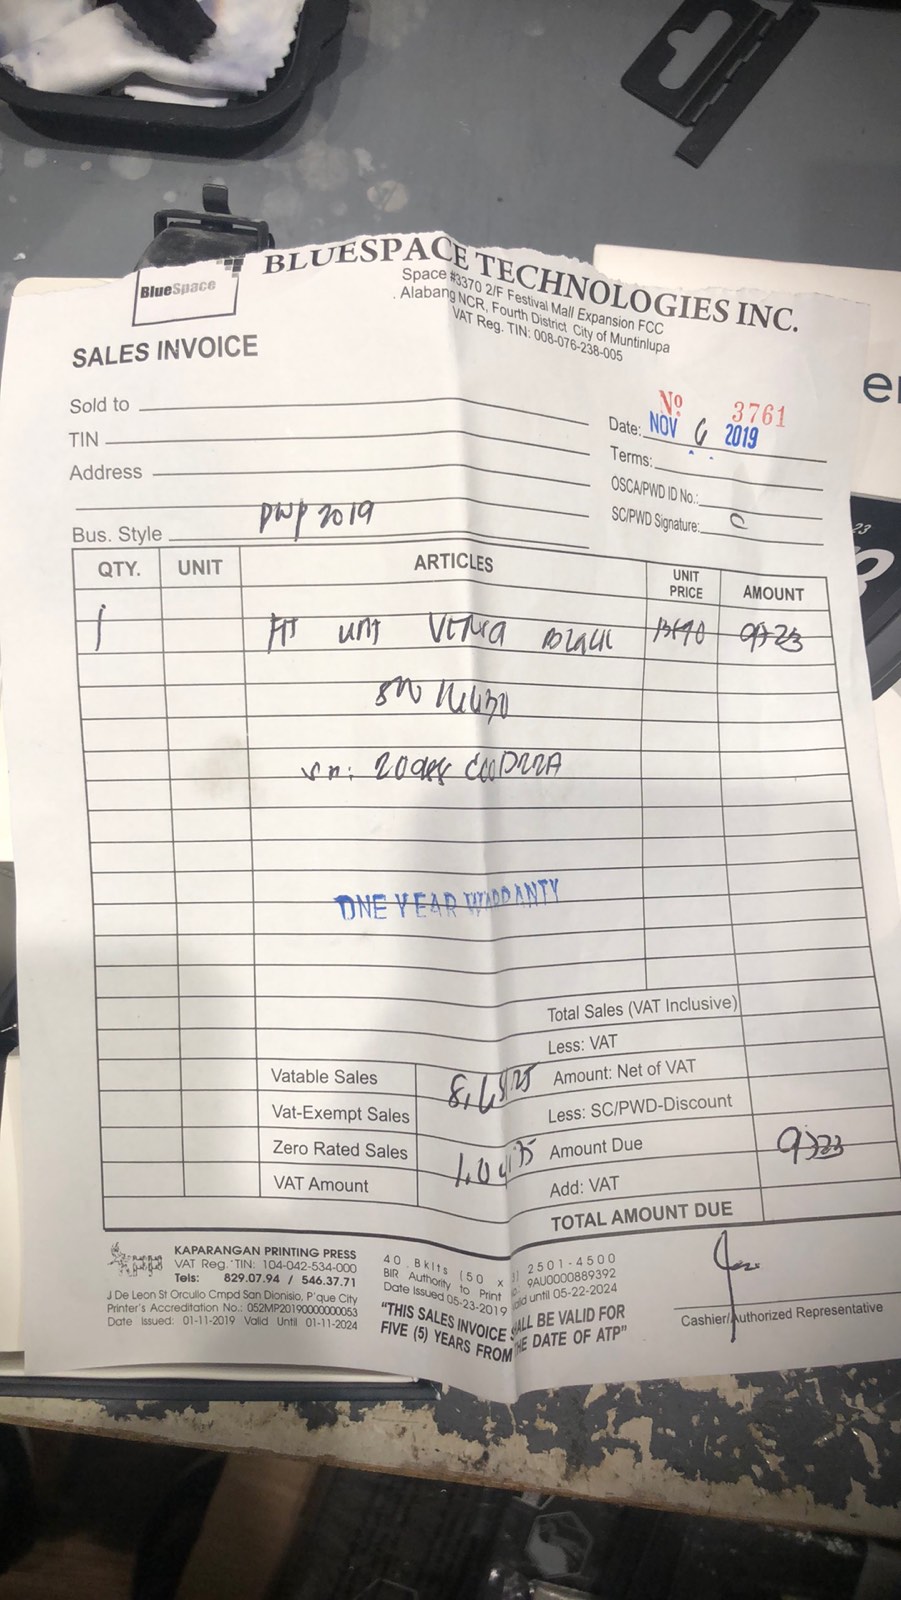 BlueSpace
BLUESPACE TECHNOLOGIES INC.
Space #3370 2/F Festival Mall Expansion FCC
Alabang NCR, Fourth District, City of Muntinlupa
VAT Reg. TIN: 008-076-238-005
SALES INVOICE
Nº 3761
Sold to
Date: NOV 6 2019
TIN
Terms:
Address
OSCA/PWD ID No.:
SC/PWD Signature:
Bus. Style PWP 2019
QTY. UNIT ARTICLES UNIT PRICE AMOUNT
1 Black 9723
sn:
ONE YEAR WARRANTY
Total Sales (VAT Inclusive)
Less: VAT
Vatable Sales
Amount: Net of VAT
Vat-Exempt Sales
Less: SC/PWD-Discount
Zero Rated Sales
Amount Due 9723
VAT Amount
Add: VAT
TOTAL AMOUNT DUE
KAPARANGAN PRINTING PRESS
VAT Reg. TIN: 104-042-534-000
Tels: 829.07.94 / 546.37.71
J De Leon St Orcullo Cmpd San Dionisio, P'que City
Printer's Accreditation No.: 052MP20190000000053
Date Issued: 01-11-2019 Valid Until 01-11-2024
40 Bklts (50 x 2501-4500
BIR Authority to Print 9AU0000889392
Date Issued 05-23-2019 until 05-22-2024
"THIS SALES INVOICE SHALL BE VALID FOR
FIVE (5) YEARS FROM THE DATE OF ATP"
Cashier/Authorized Representative
23